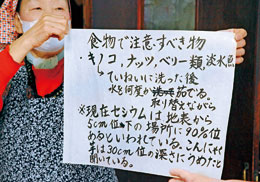 食物で注意すべき物
・キノコ、ナッツ、ベリー類 淡水魚
ていねいに洗った後
水を何度か 茹でる。
取り替えながら
※現在セシウムは地表から
5cm位下の場所に90%位
あるといわれている。こんにゃく
芋は30cm位の深さにうめたと
聞いている。